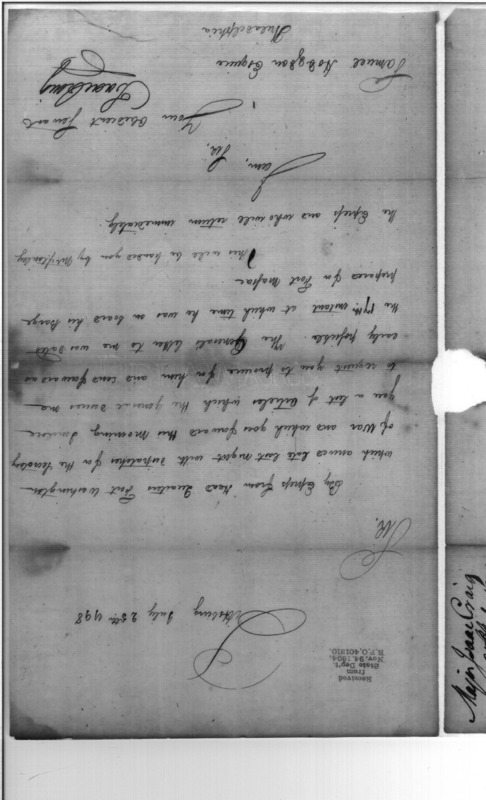 Received
from
State Dep't.
Nov. 24, 1904.
R.P.O. 401910.
Pittsburg July 25th 1798
SIR.
By Express from Head Quarters Fort Washington
which arrived late last night with dispatches for the Secretary
of War and which goes forward this morning I inclose
you a list of Articles which the general desires me
to request you to procure for him and send forward as
early possible. The General letter to me was dated
the 17th instant at which time he was on board his Barge
prepared for Fort Massac
This will be handed you by
the Express and who will return immediately.
I am, Sir,
Your Obedient Servant
Isaac Craig
Samuel Hodgdon Esquire
Philadelphia
Major Isaac Craig